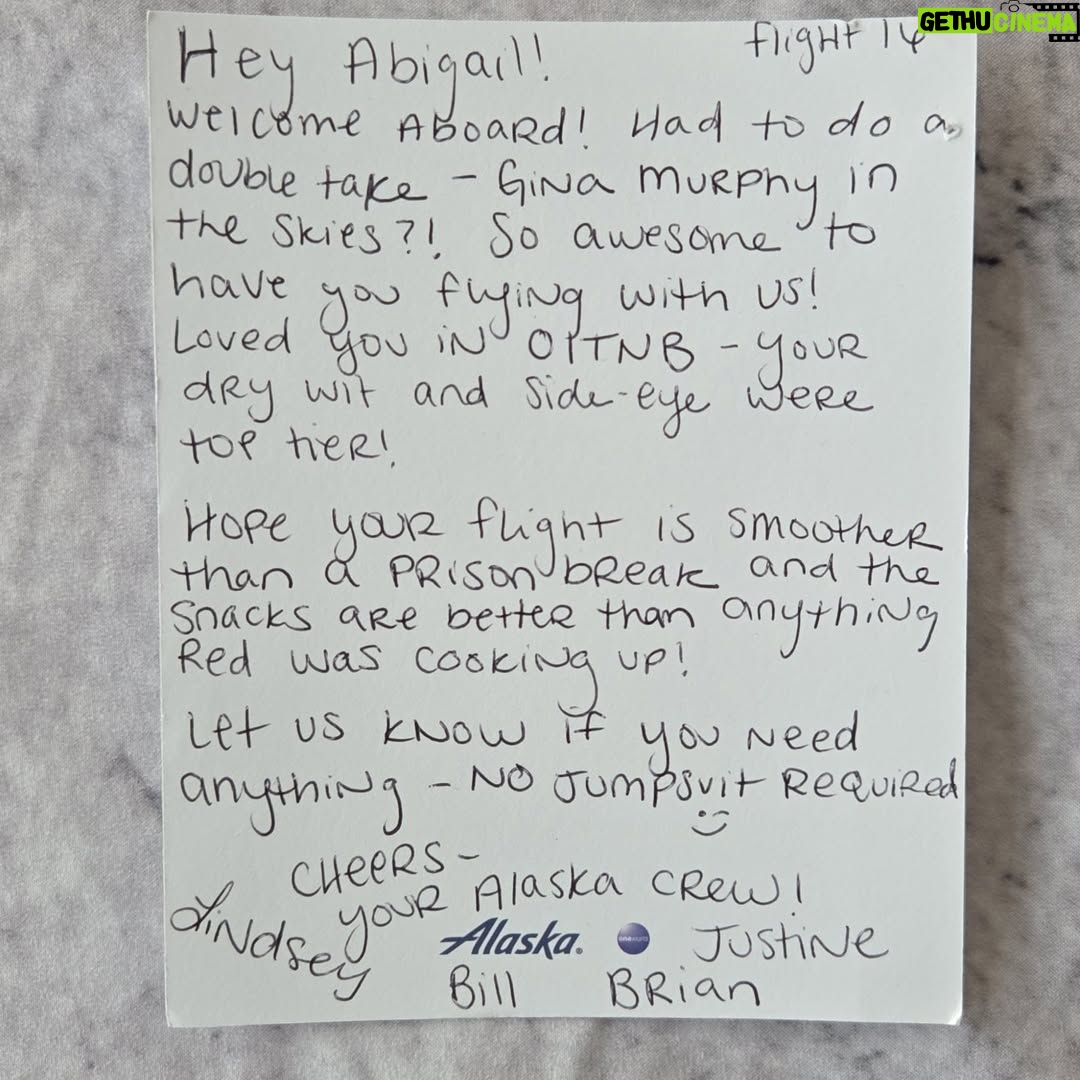 GETHUCINEMA
flight 14
Hey Abigail!
Welcome Aboard! Had to do a
double take - Gina Murphy in
the skies?! So awesome to
have you flying with us!
Loved you in OITNB - your
dry wit and side-eye were
top tier!
Hope your flight is smoother
than a prison break and the
snacks are better than anything
Red was cooking up!
Let us know if you need
anything - NO Jumpsuit Required
Cheers-
your Alaska crew!
Lindsey
Alaska. oneworld Justine
Bill Brian